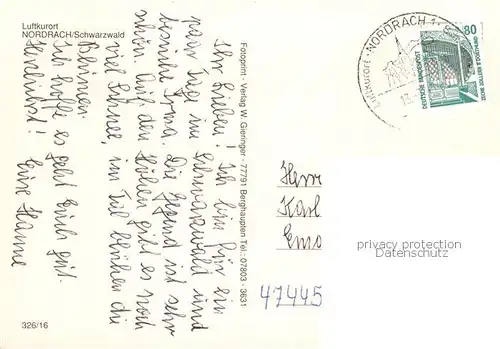 Luftkurort
NORDRACH/Schwarzwald
Ihr Lieben! Ich bin für ein
paar Tage im Schwarzwald und
besuche Irma. Die Gegend ist sehr
schön. Auf den Höhen gibt es noch
viel Schnee, im Tal blühen die
Blumen.
Ich hoffe es geht Euch gut.
Herzlichst! Eure Hanne
326/16
Fotoprint - Verlag W. Gieringer - 77791 Berghaupten Tel.: 07803 - 3631
Luftkurort · NORDRACH
80
DEUTSCHE BUNDESPOST
Herr
Karl
Ems
privacy protection
Datenschutz
47445